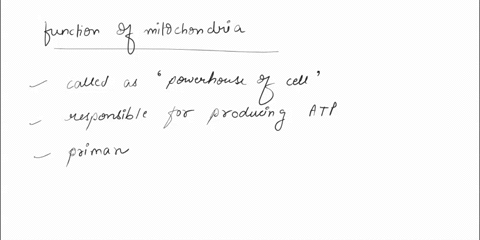 function of mitochondria
- called as 'powerhouse of cell'
- responsible for producing ATP
- priman